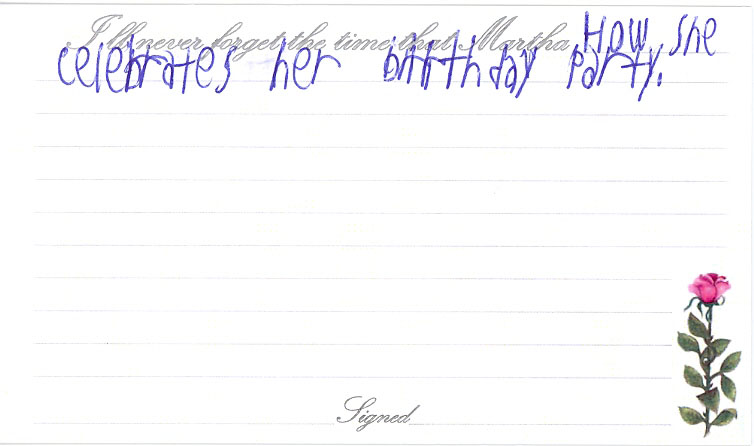 I'll never forget the time that Martha How she
celebrates her birthday party.
Signed